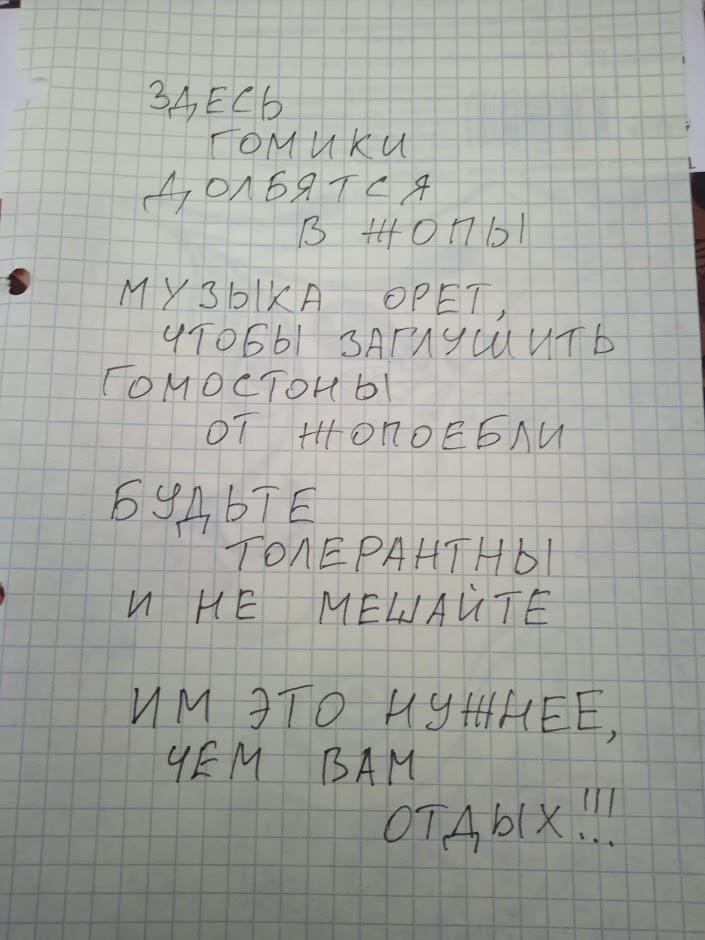 ЗДЕСЬ
ГОМИКИ
ДОЛБЯТСЯ
В ЖОПЫ
МУЗЫКА ОРЕТ,
ЧТОБЫ ЗАГЛУШИТЬ
ГОМОСТОНЫ
ОТ ЖОПОЕБЛИ
БУДЬТЕ
ТОЛЕРАНТНЫ
И НЕ МЕШАЙТЕ
ИМ ЭТО НУЖНЕЕ,
ЧЕМ ВАМ
ОТДЫХ!!!